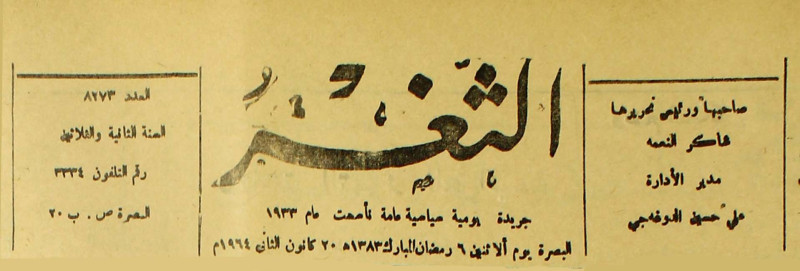 صاحبها ورئيس تحريرها
شاكر النعمه
مدير الأدارة
علي حسين الدوغه جي
الثغر
جريدة يومية سياسية عامة تأسست عام ١٩٣٣
البصرة يوم ألاثنين ٦ رمضان المبارك ١٣٨٣ه ٢٠ كانون الثاني ١٩٦٤م
العدد ٨٢٧٣
السنة الثانية والثلاثين
رقم التلفون ٣٣٣٤
البصرة ص . ب ٢٠